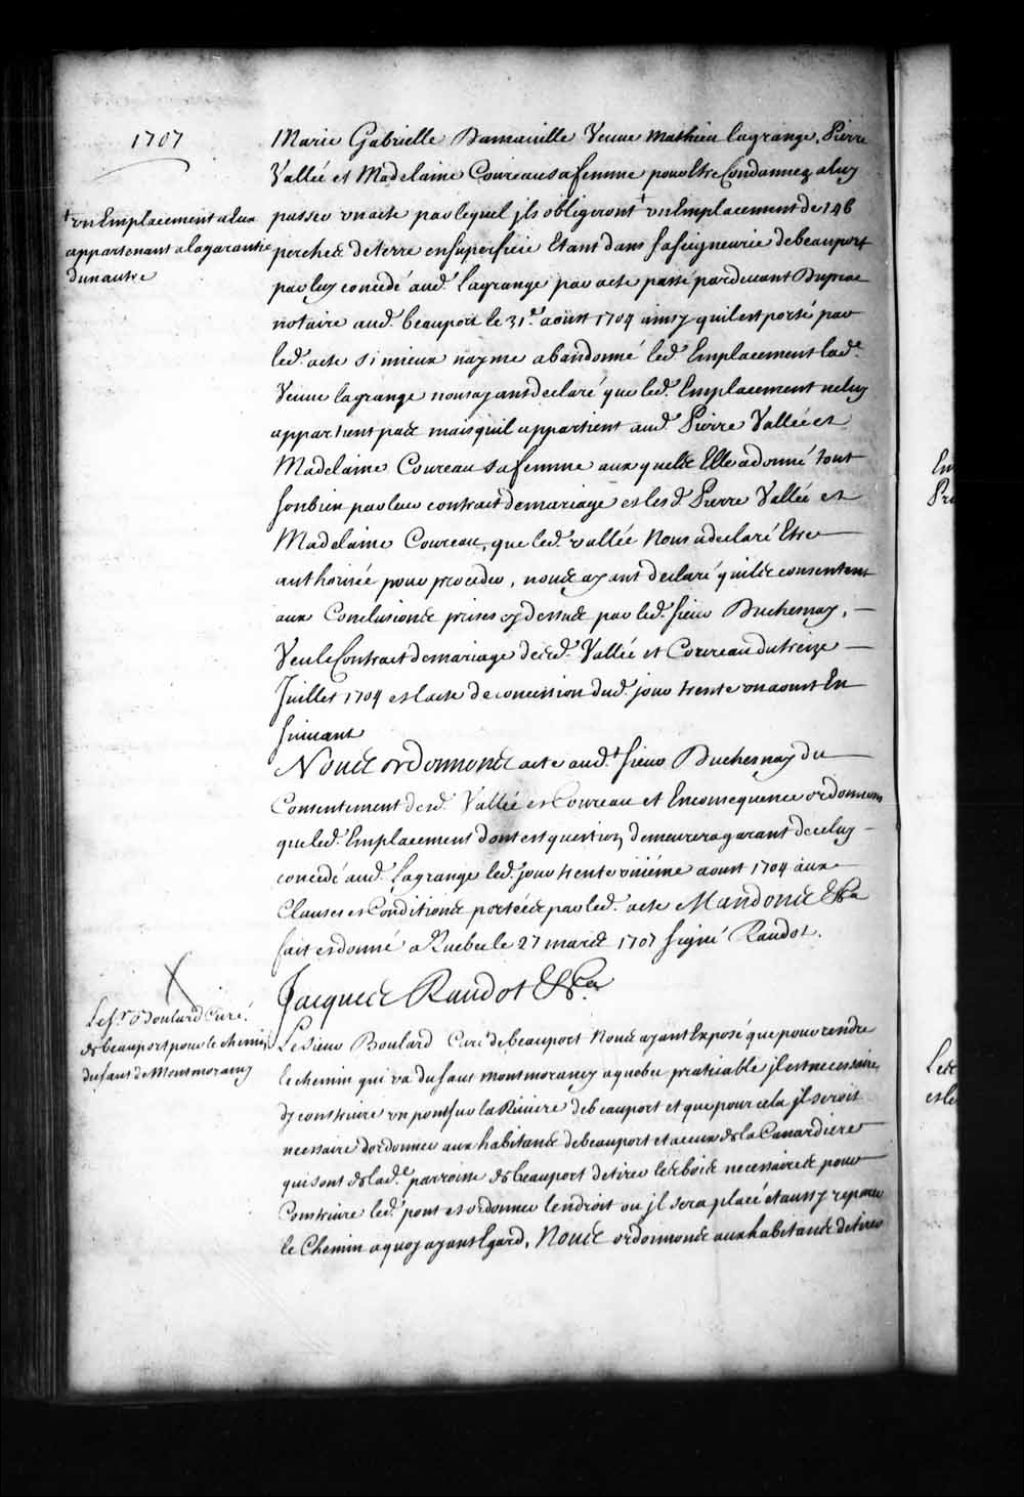 1707
Marie Gabrielle Damauille Veuue Mathieu lagrange, Pierre
Vallée et Madelaine Coureau sa femme pour Etre Condannez aluy
passer un acte par lequel jls obligeront + un Emplacement de 148
+ un Emplacement a Eux
appartenant a la garantie
d'un autre
perches de terre en superficie Etant dans sa seigneurie de beauport
par luy concedé aud. Lagrange par acte passé pardeuant Duprac
notaire aud. beauport le 31e. aoust 1704 ainsy quil est porté par
led. acte si mieux nayme abandonné led. Emplacement lad.e
Veuue lagrange nous ayant declaré que led. Emplacement ne luy
appartient pas mais quil appartient aud. Pierre Vallée et
Madelaine Coureau sa femme aux quels Elle a donné tout
son bien par leur contract de mariage et lesd. Pierre Vallée et
Madelaine Coureau, que led. vallée Nous a declaré Etre
authorisée pour proceder, nous ayant declaré quils consentent
aux Conclusions prises cy dessus par led. sieur Duchesnay,
Veu le Contract de mariage desd. Vallée et Coureau du treize
Juillet 1704 et l'acte de concession dud. jour trente un aoust En
suiuant
Nous ordonnons acte aud. sieur Duchesnay du
Consentement desd. Vallée et Coureau et En consequence ordonnons
que led. Emplacement dont est question demeurera garant de celuy
concedé aud. Lagrange led. jour trente uniéme aoust 1704 aux
Clauses et Conditions portées par led. acte Mandons &ca
fait et donné a Quebec le 27 mars 1707 signé Raudot.
Jacques Raudot &ca
Le sr. Boulard Curé
de beauport pour le chemin
du saut de Montmorancy
Le sieur Boulard Curé de beauport Nous ayant Exposé que pour rendre
le chemin qui va du saut montmorancy a quebec praticable jl est necessaire
dy construire un pont sur la Riuiere de beauport et que pour cela jl seroit
necessaire d'ordonner aux habitans de beauport et a ceux de la Canardiere
qui sont de lad.e parroisse de beauport de tirer les bois necessaires pour
Construire led. pont et ordonner lendroit ou jl sera placé et aussy reparer
le Chemin a quoy ayant Egard, Nous ordonnons aux habitans de tirer